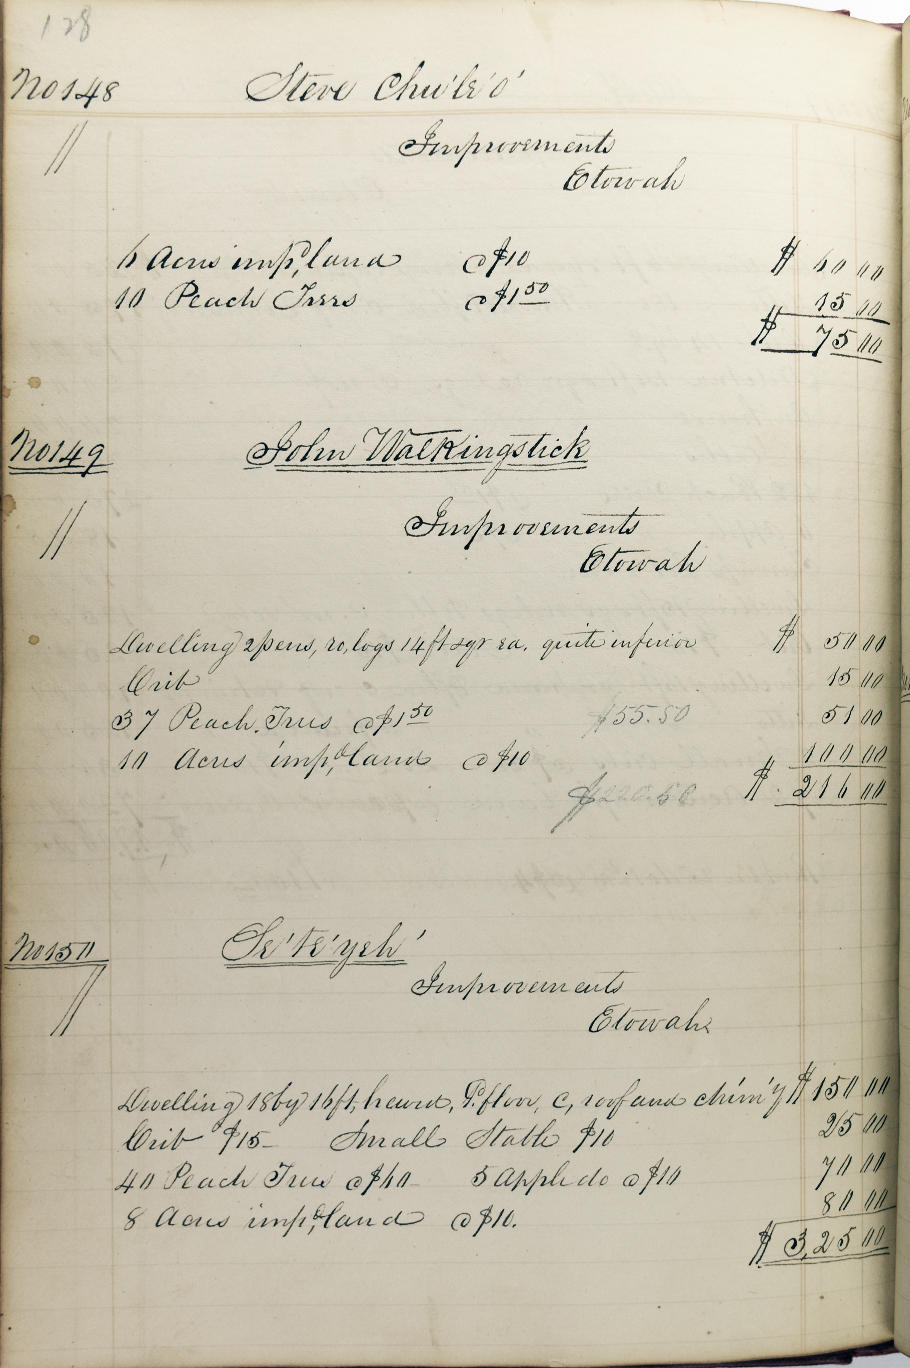 128
No 148 Steve Chu'le'o'
//
Improvements
Etowah
6 Acres imp,d land @ $10 $ 60 00
10 Peach Trees @ $1 50 15 00
$ 75 00
No 149 John Walkingstick
//
Improvements
Etowah
Dwelling 2 pens, ro, logs 14 ft sqr ea. quite inferior $ 50 00
Crib 15 00
37 Peach Trees @ $1 50 $55.50 51 00
10 Acres imp,d land @ $10 100 00
$220.50 $ 216 00
No 150 Se'te'yeh'
//
Improvements
Etowah
Dwelling 18 by 16 ft, hewd, P. floor, C, roof and chim'y $ 150 00
Crib $15 Small Stable $10 25 00
40 Peach Trees @ $60 5 Apple do @ $10 70 00
8 Acres imp,d land @ $10. 80 00
$ 3,25 00